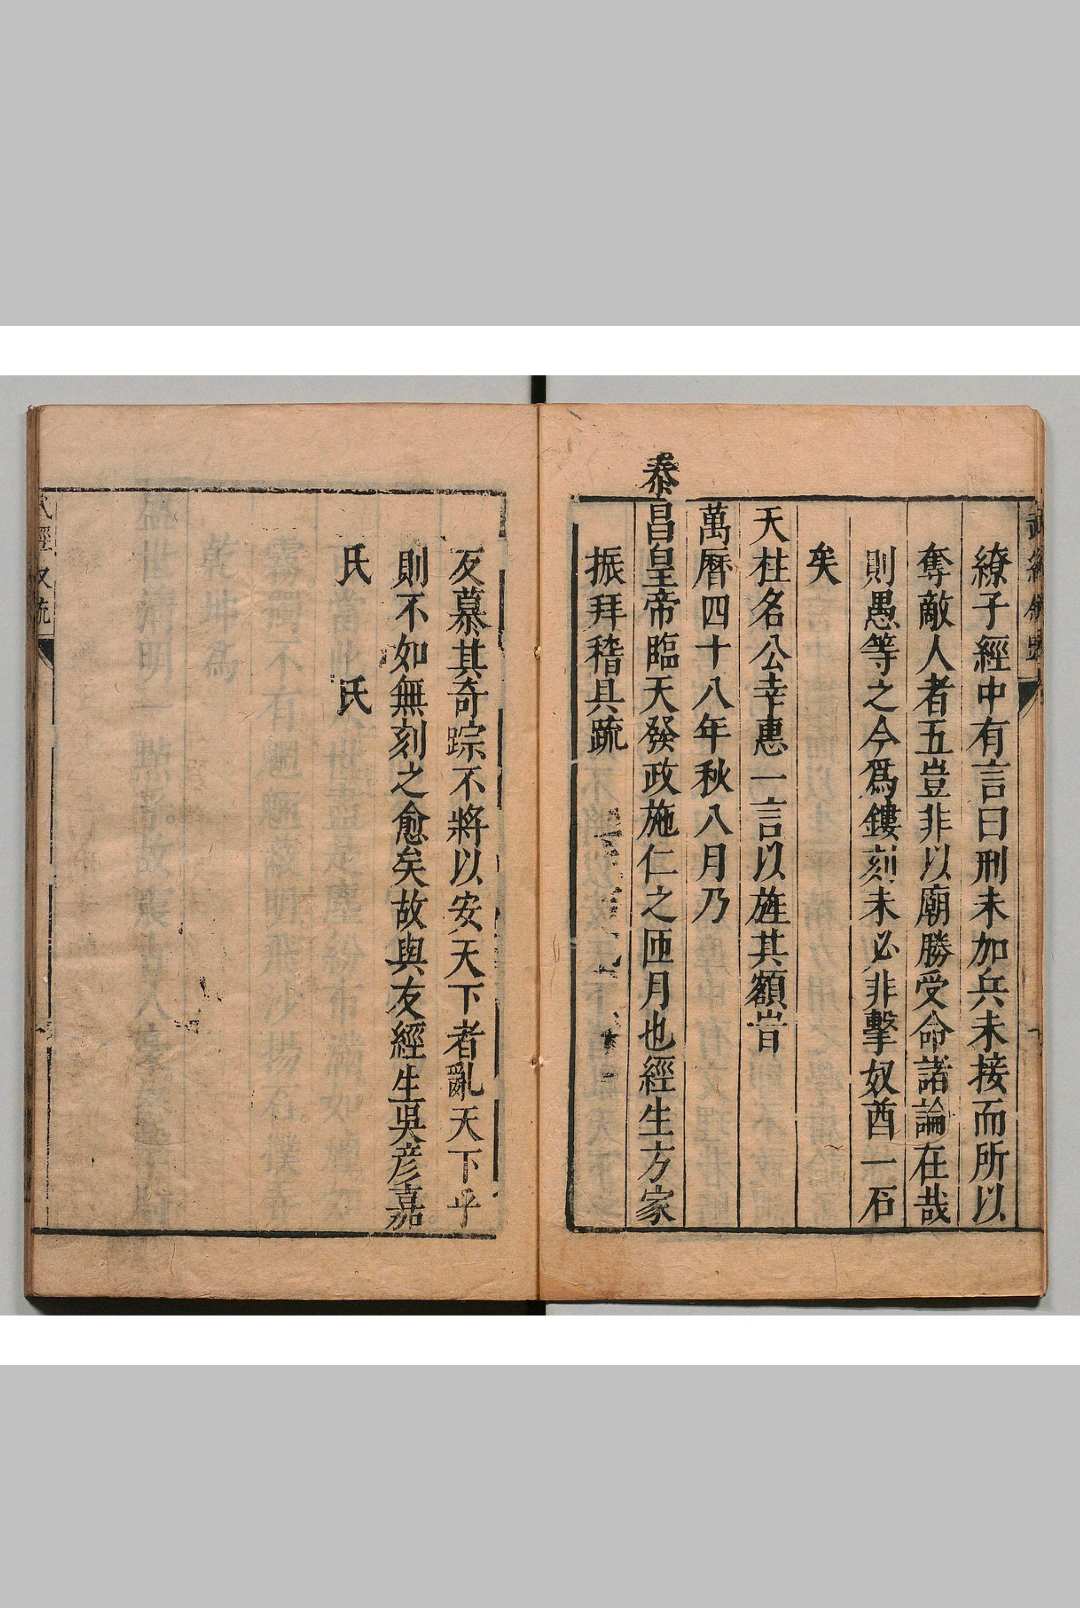 繚子經中有言曰刑未加兵未接而所以
奪敵人者五豈非以廟勝受命諸論在哉
則愚等之今爲鏤刻未必非擊奴酋一石
矣
天柱名公幸惠一言以旌其額旹
萬曆四十八年秋八月乃
泰昌皇帝臨天發政施仁之匝月也經生方家
振拜稽具疏
反慕其奇踪不將以安天下者亂天下乎
則不如無刻之愈矣故與友經生吳彥嘉
氏 氏